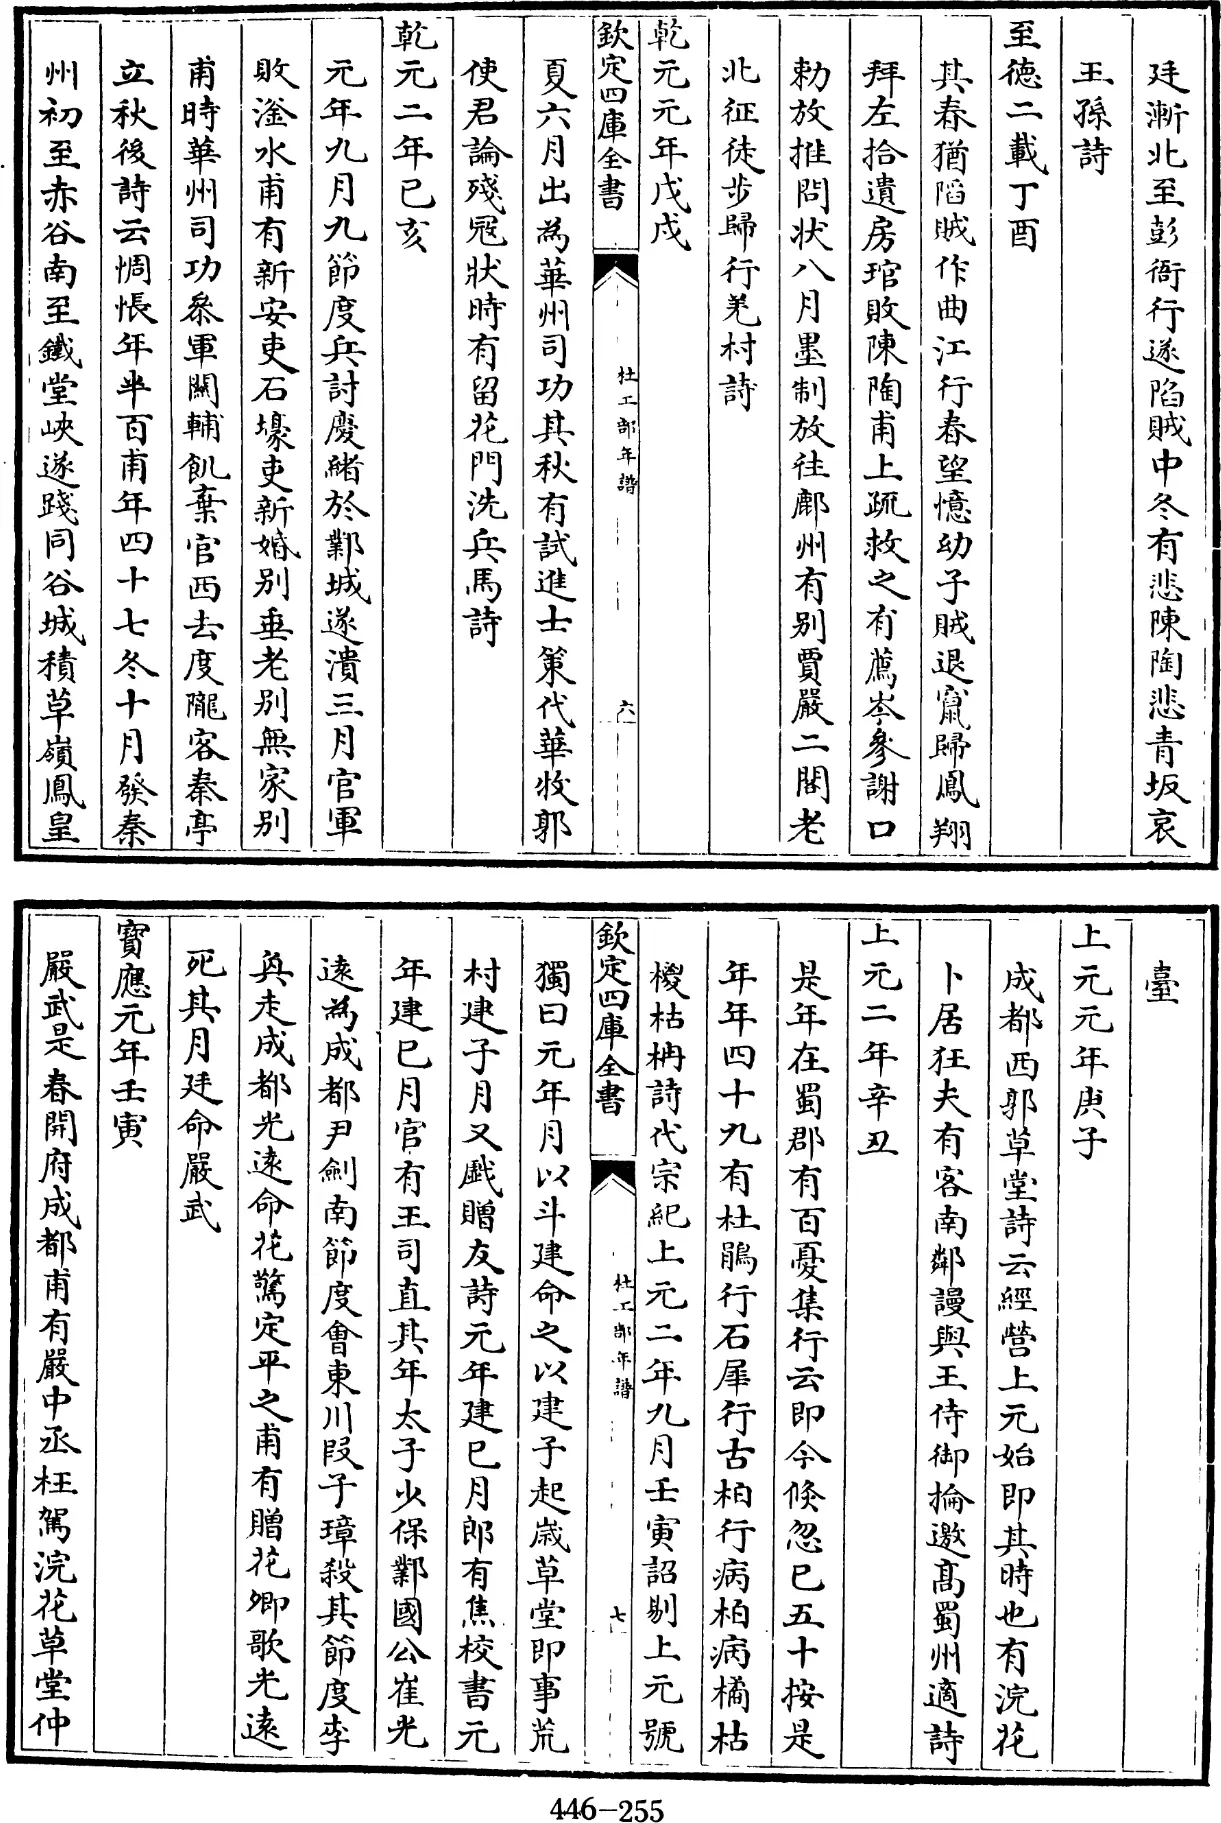 廷漸北至彭衙行遂陷賊中冬有悲陳陶悲青坂哀
王孫詩
至徳二載丁酉
其春猶陷賊作曲江行春望憶幼子賊退竄歸鳳翔
拜左拾遺房琯敗陳陶甫上疏救之有薦岑參謝口
勅放推問狀八月墨制放往鄜州有别賈嚴二閣老
北征徒步歸行羌村詩
乾元元年戊戌
欽定四庫全書
杜工部年譜
六
夏六月出為華州司功其秋有試進士策代華牧郭
使君論殘冦狀時有留花門洗兵馬詩
乾元二年己亥
元年九月九節度兵討慶緒於鄴城遂潰三月官軍
敗滏水甫有新安吏石壕吏新婚别垂老别無家别
甫時華州司功叅軍關輔飢棄官西去度隴客秦亭
立秋後詩云惆悵年半百甫年四十七冬十月發秦
州初至赤谷南至鐵堂峽遂踐同谷城積草嶺鳳皇
臺
上元元年庚子
成都西郭草堂詩云經營上元始即其時也有浣花
卜居狂夫有客南鄰謾與王侍御掄邀髙蜀州適詩
上元二年辛丑
是年在蜀郡有百憂集行云即今倐忽已五十按是
年年四十九有杜鵑行石犀行古柏行病柏病橘枯
椶枯柟詩代宗紀上元二年九月壬寅詔剔上元號
欽定四庫全書
杜工部年譜
七
獨曰元年月以斗建命之以建子起嵗草堂即事荒
村建子月又戲贈友詩元年建巳月郎有焦校書元
年建巳月官有王司直其年太子少保鄴國公崔光
逺為成都尹劍南節度會東川叚子璋殺其節度李
奐走成都光逺命花驚定平之甫有贈花卿歌光逺
死其月廷命嚴武
寳應元年壬寅
嚴武是春開府成都甫有嚴中丞枉駕浣花草堂仲
446-255